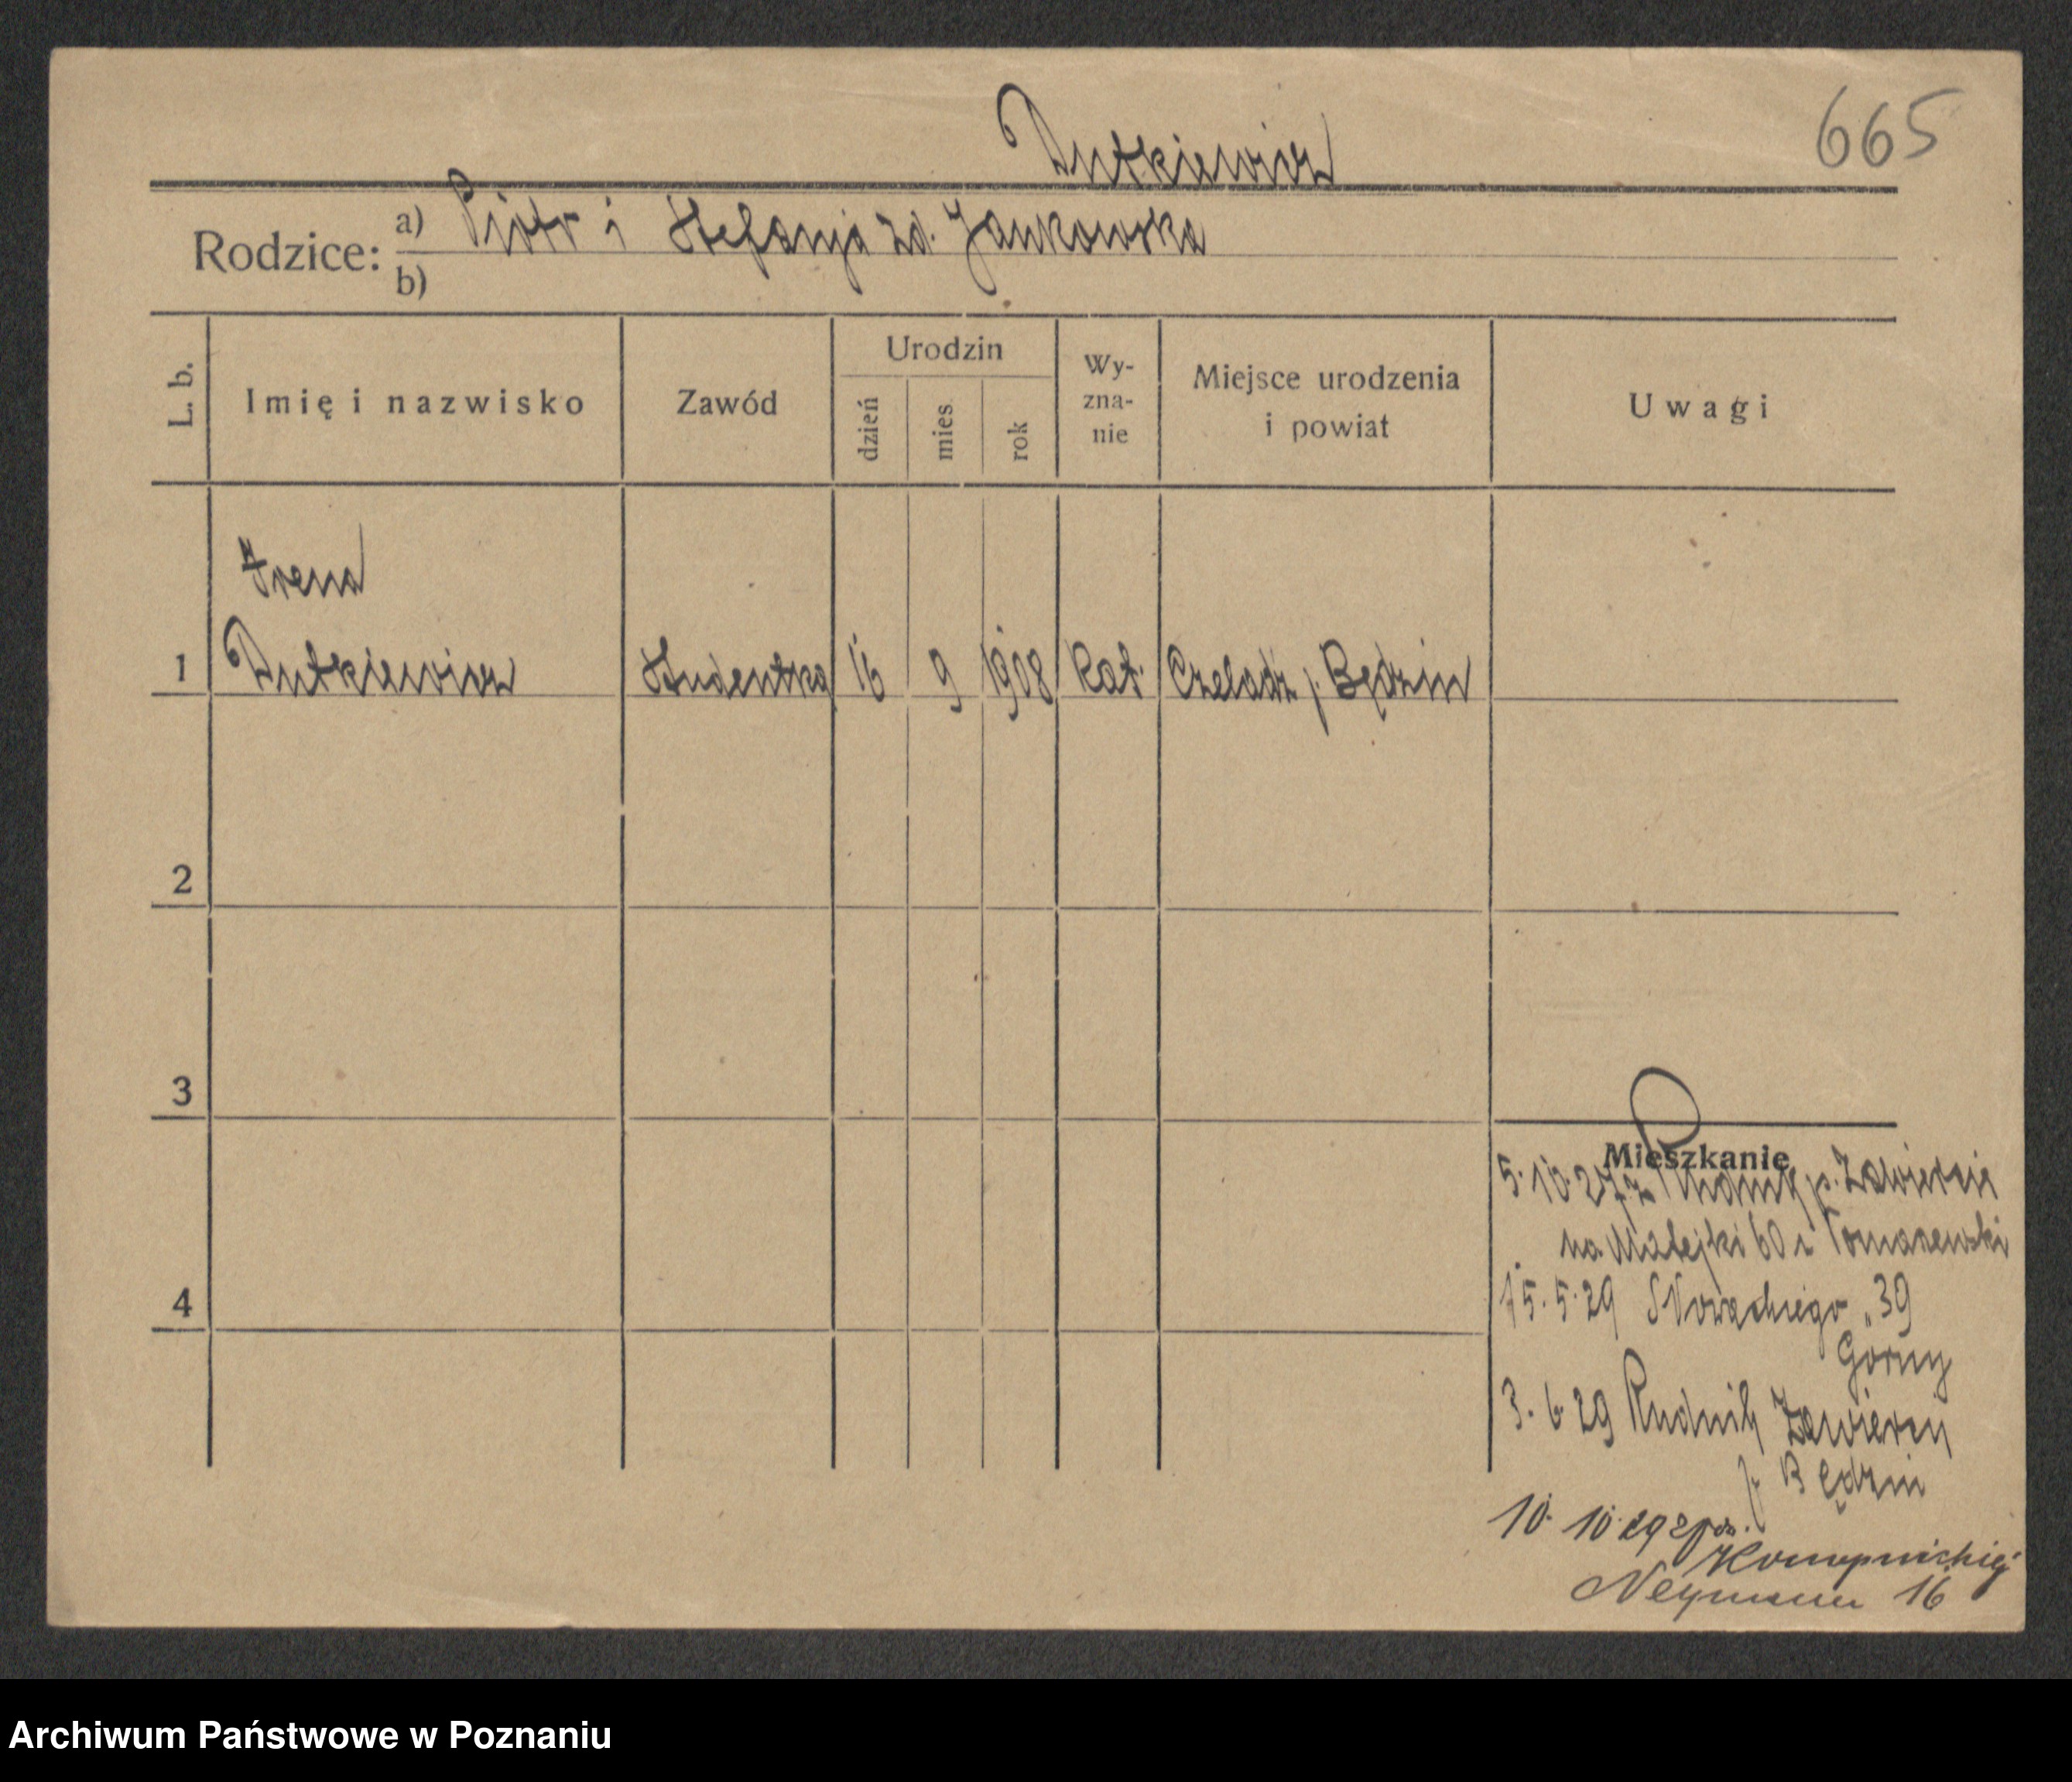 665
Dutkiewicz
Rodzice: a) Piotr i Stefanja zd. Jankowska
b)
L. b.
Imię i nazwisko
Zawód
Urodzin
dzień
mies
rok
Wy-
zna-
nie
Miejsce urodzenia
i powiat
Uwagi
Irena
1 Dutkiewicz Studentka 16 9 1908 kat. Czeladź p. Będzin
2
3
4
Mieszkanie
5.10.27 z Rudnik p. Zawiercie
na Matejki 60 Tomaszewski
15.5.29 Słowackiego 39
Górny
3.6.29 Rudnik Zawiercy
p. Będzin
10.10.29
Konopnickiej
Neymann 16
Archiwum Państwowe w Poznaniu